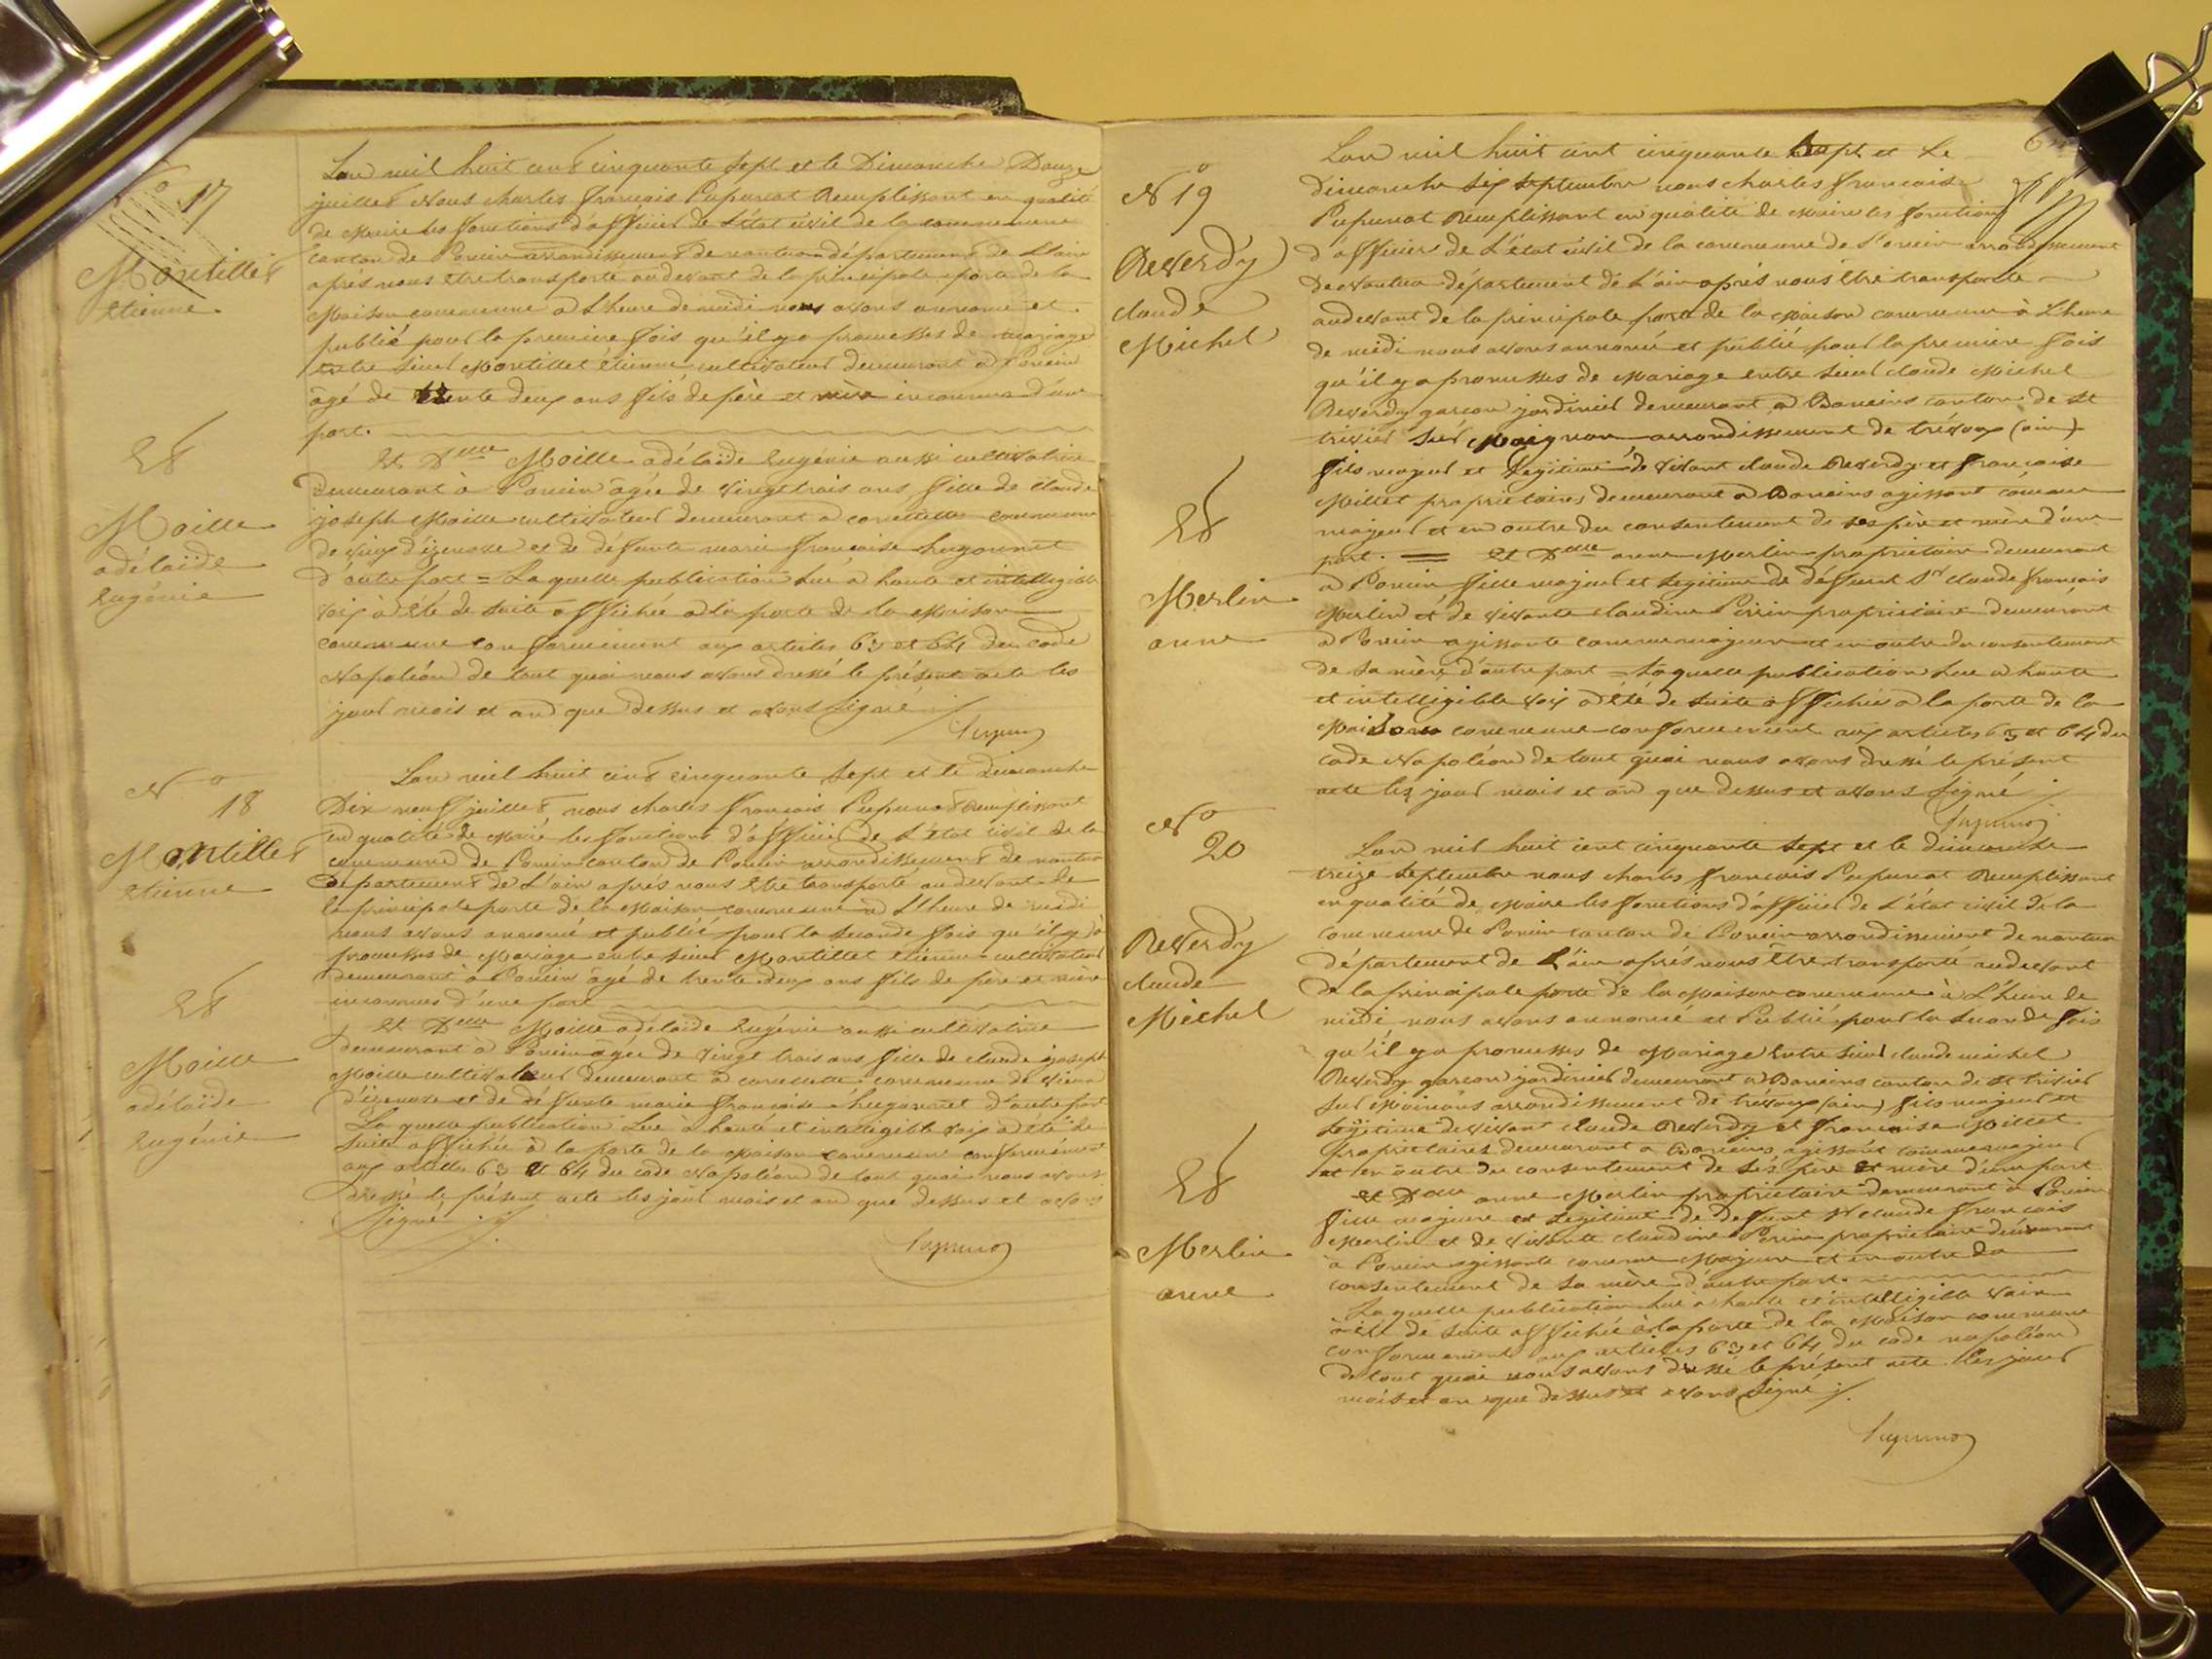 No 17
Montillet
étienne
Et
Moille
adélaïde
Eugénie
L'an mil huit cent cinquante sept et le Dimanche Douze
juillet Nous charles françois Pupunat Remplissant en qualité
de Maire les fonctions d'officier de l'état civil de la commune
canton de Poncin arrondissement de nantua département de L'ain
après nous être transporté au devant de la principale porte de la
Maison commune à L'heure de midi nous avons annoncé et
publié pour la première fois qu'il y a promesses de mariage
entre sieur Montillet étienne cultivateur demeurant à Poncin
âgé de trente deux ans fils de père et mère inconnus d'une
part.
Et Delle Moille adélaïde Eugénie aussi cultivatrice
demeurant à Poncin âgée de vingt trois ans fille de claude
joseph Moille cultivateur demeurant à commune
de vieux d'izenave et de défunte marie françoise hugonnet
d'autre part = Laquelle publication lue à haute et intelligible
voix à été de suite affichée à la porte de la Maison
commune conformement aux articles 63 et 64 du code
Napoléon de tout quoi nous avons dressé le présent acte les
jour mois et an que dessus et avons signé
Pupunat
No 18
Montillet
étienne
Et
Moille
adélaïde
Eugénie
L'an mil huit cent cinquante sept et le dimanche
Dix neuf juillet nous charles françois Pupunat Remplissant
en qualité de Maire les fonctions d'officier de L'état civil de la
commune de Poncin canton de Poncin arrondissement de nantua
département de L'ain après nous être transporté au devant de
la principale porte de la Maison commune à L'heure de midi
nous avons annoncé et publié pour la seconde fois qu'il y a
promesses de Mariage entre sieur Montillet étienne cultivateur
demeurant à Poncin âgé de trente deux ans fils de père et mère
inconnus d'une part
Et Delle Moille adélaïde Eugénie aussi cultivatrice
demeurant à Poncin âgée de vingt trois ans fille de claude joseph
Moille cultivateur demeurant à commune de vieux
d'izenave et de défunte marie françoise hugonnet d'autre part
Laquelle publication Lue à haute et intelligible voix à été de
suite affichée à la porte de la Maison commune conformément
aux articles 63 et 64 du code Napoléon de tout quoi nous avons
dressé le présent acte les jour mois et an que dessus et avons
signé
Pupunat
No 19
Reverdy
claude
Michel
Et
Merlin
anne
L'an mil huit cent cinquante sept et Le
Dimanche six septembre nous charles françois
Pupunat Remplissant en qualité de Maire les fonctions
d'officier de L'état civil de la commune de Poncin arrondissement
de nantua département de L'ain après nous être transporté
au devant de la principale porte de la Maison commune à L'heure
de midi nous avons annoncé et publié pour la première fois
qu'il y a promesses de Mariage entre sieur claude Michel
Reverdy garçon jardinier demeurant à Baneins canton de st
trivier sur Moignan arrondissement de trévoux (ain)
fils majeur et Legitime de vivant claude Reverdy et françoise
Millet propriétaires demeurant à Baneins agissant comme
majeur et en outre du consentement de ses père et mère d'une
part. = Et Delle anne Merlin propriétaire demeurant
à Poncin fille majeur et Legitime de défunt Sr claude françois
Merlin et de vivante claudine Périn propriétaire demeurant
à Poncin agissante comme majeure et en outre du consentement
de sa mère d'autre part = Laquelle publication Lue à haute
et intelligible voix à été de suite affichée à la porte de la
Maison commune conformement aux articles 63 et 64 du
code Napoléon de tout quoi nous avons dressé le présent
acte les jour mois et an que dessus et avons signé
Pupunat
No 20
Reverdy
claude
Michel
Et
Merlin
anne
L'an mil huit cent cinquante sept et le dimanche
treize septembre nous charles françois Pupunat Remplissant
en qualité de Maire les fonctions d'officier de L'état civil de la
commune de Poncin canton de Poncin arrondissement de nantua
département de L'ain après nous être transporté au devant
de la principale porte de la Maison commune à L'heure de
midi nous avons annoncé et Publié pour la seconde fois
qu'il y a promesses de Mariage Entre sieur claude michel
Reverdy garçon jardinier demeurant à Baneins canton de st trivier
sur arrondissement de trevoux (ain) fils majeur et
Légitime de vivant claude Reverdy et françoise Millet
propriétaires demeurant à Baneins agissant comme majeur
et en outre du consentement de ses père et mère d'une part
et Delle anne Merlin propriétaire demeurant à Poncin
fille majeure et Legitime de defunt Sr claude françois
Merlin et de vivante claudine Périn propriétaire demeurant
à Poncin agissante comme Majeure et en outre du
consentement de sa mère d'autre part.
Laquelle publication Lue à haute et intelligible voix
à été de suite affichée à la porte de la Maison commune
conformement aux articles 63 et 64 du code napoléon
de tout quoi nous avons dressé le présent acte les jour
mois et an que dessus et avons signé
Pupunat